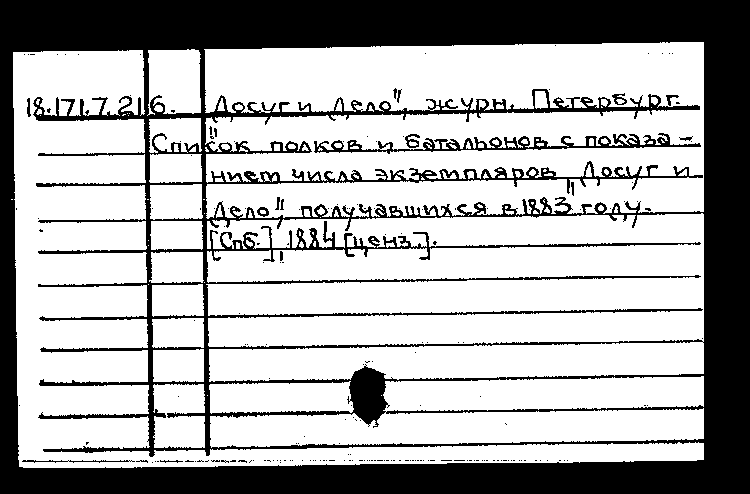 18.171.7.216. „Досуг и Дело", журн. Петербург.
Список полков и батальонов с показа-
нием числа экземпляров „Досуг и
Дело", получавшихся в 1883 году.
[Спб.], 1884 [ценз.].